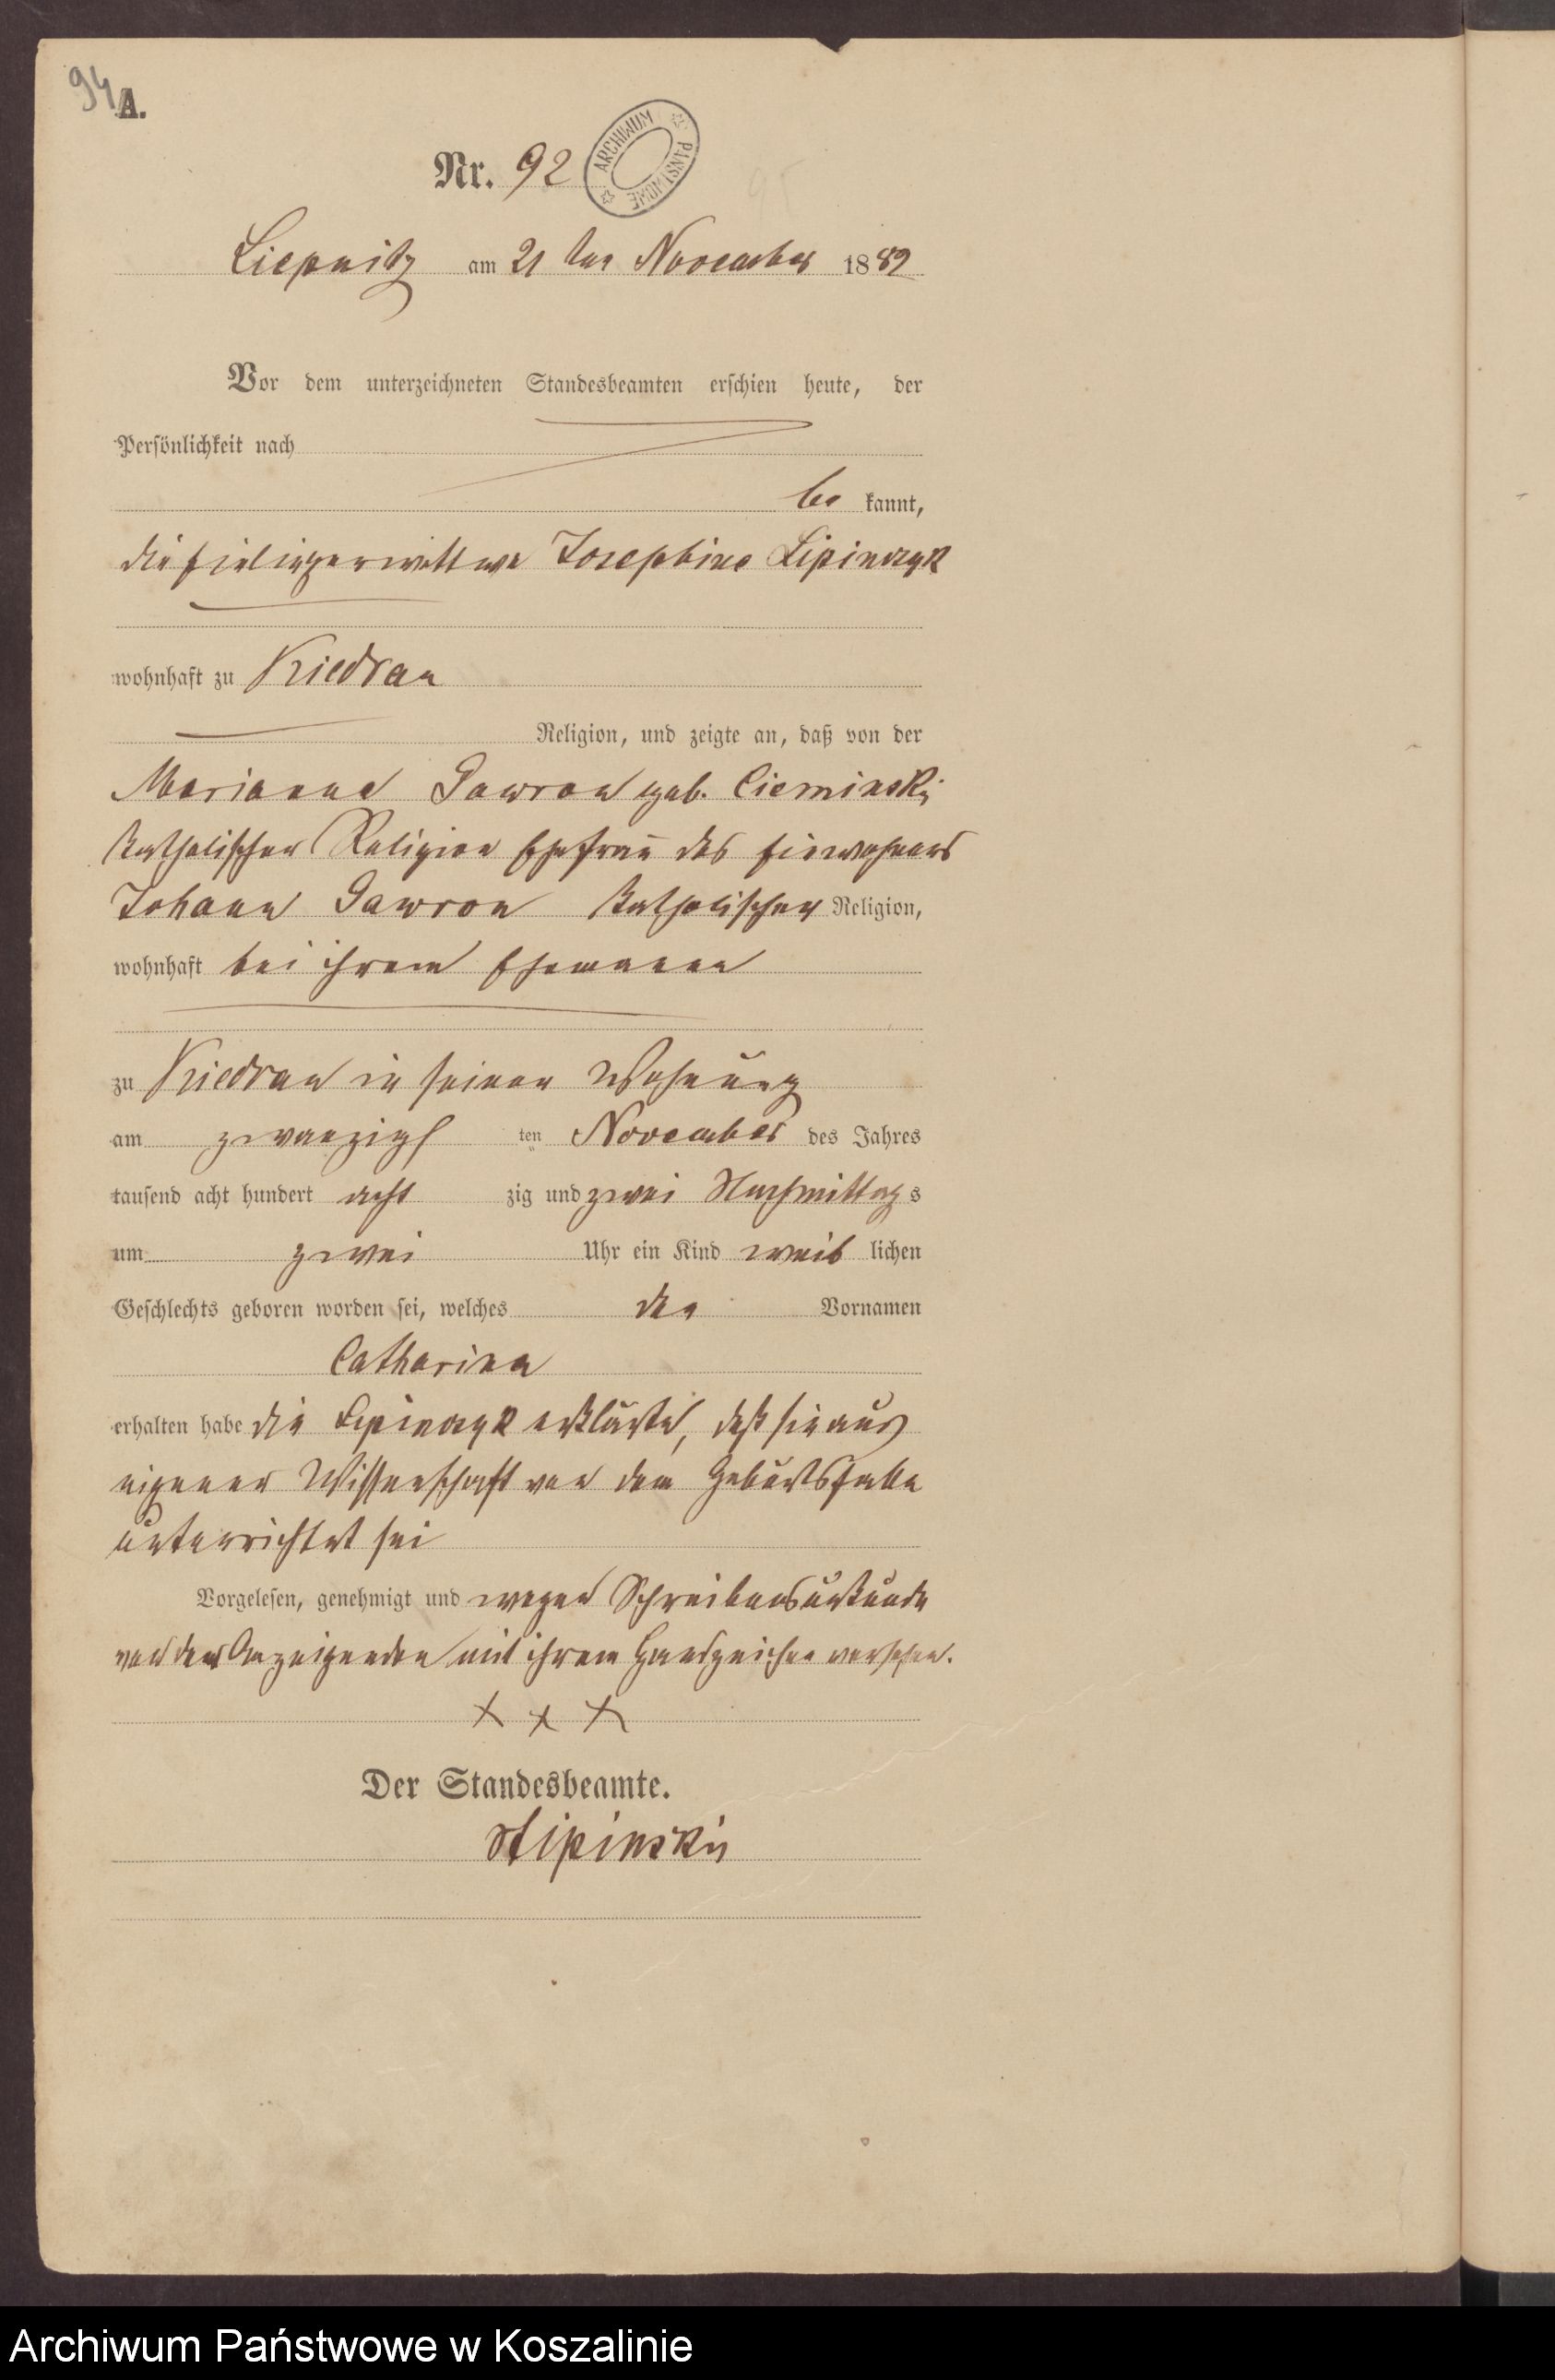 94
A.
Nr. 92
ARCHIWUM PAŃSTWOWE
95
Liepnitz am 21 ten November 1882
Vor dem unterzeichneten Standesbeamten erschien heute, der
Persönlichkeit nach
be kannt,
die Josephine Lipinczyk
wohnhaft zu Kiedrau
Religion, und zeigte an, daß von der
Marianna Gawron geb. Cieminski
katholischer Religion Ehefrau des Einwohners
Johann Gawron katholischer Religion,
wohnhaft bei ihrem Ehemanne
zu Kiedrau in seiner Wohnung
am zwanzigs ten November des Jahres
tausend acht hundert acht zig und zwei Nachmittags
um zwei Uhr ein Kind weib lichen
Geschlechts geboren worden sei, welches den Vornamen
Catharina
erhalten habe die Lipinczyk erklärte, daß sie aus
eigener Wissenschaft von dem Geburtsfalle
unterrichtet sei
Vorgelesen, genehmigt und wegen Schreibensunkunde
von der Anzeigenden mit ihrem Handzeichen versehen.
x x x
Der Standesbeamte.
Archiwum Państwowe w Koszalinie